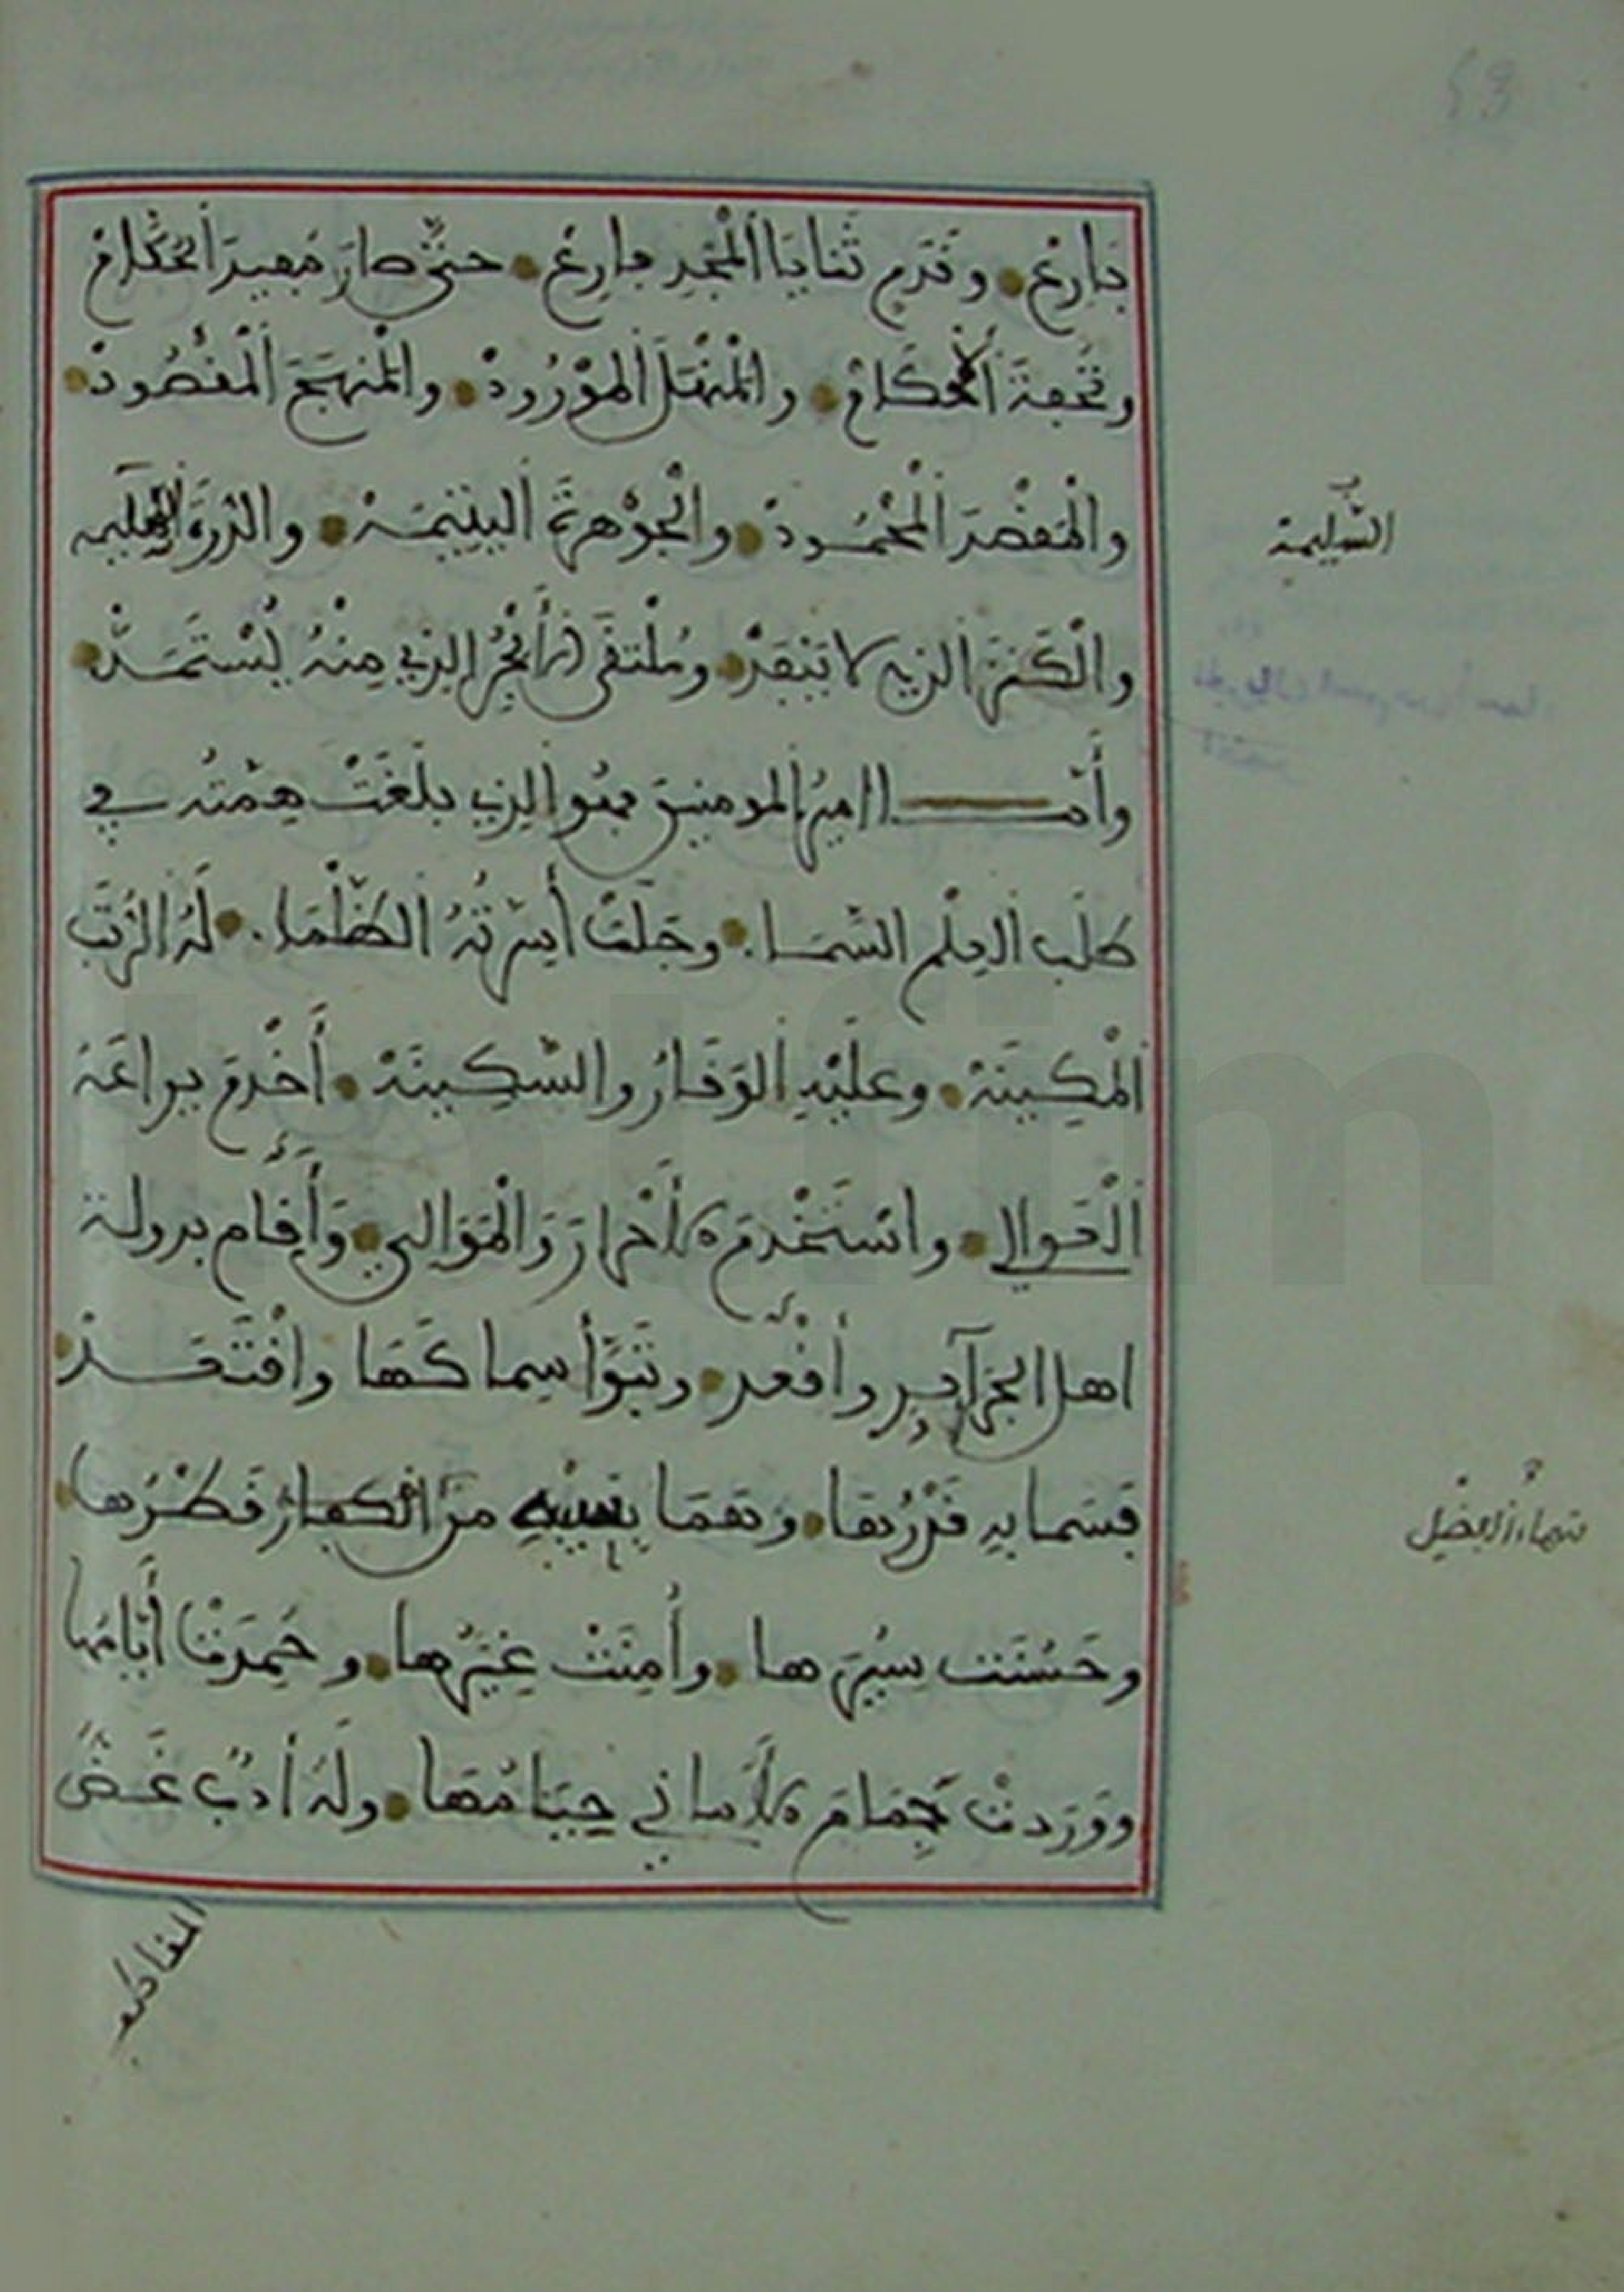 بَارِعْ وقَدَم ثَنايَا الْمَجْدِ فارِعْ حتى صارَ مُفِيدَ الحُكَّامْ
وتُحْفةَ الأحْكَامْ والمنْهَلَ الموْرُودْ والمنهَجَ الْمقْصُودْ
والْمَقْصَدَ الْمحْمُودْ والْجوْهرَةَ الْيَتِيمَةْ والدرةَ
والْكَنزَ الذي لا يَنْفَدْ ومُلْتقَى الأبْحُرِ الذي مِنْهُ يُسْتَمَدّْ
وأمّا امير المومنين فهُو الذي بلَغَتْ هِمّتُه في
طلَب العِلْم السّمَا وجَلَتْ أسِرّتُهُ الظلْمَا لَهُ الرّتَب
الْمكِينَةْ وعلَيْهِ الوَقَارُ والسّكِينَةْ أخْدَمَ يراعَهُ
الْقَوافي واسْتَخْدمَ الأحْرارَ وَالْمَوَالِي وَأَقام بدولة
اهل الجزآئر وأقْعد وتَبَوّأ سِماكَهَا واقْتَعَدْ
فسَما بهِ قَدْرُهَا وهَمَا بِسَيْبِهِ من الكفار قَطْرُها
وحَسُنَت سِيَرها وأُمِنَتْ غِيَرُها وحُمِدَتْ أيّامُها
ووَرَدتْ جِمَامَ الأمَانِي حِيَامُهَا ولَهُ أدبٌ غَضّ
السَّلِيمة